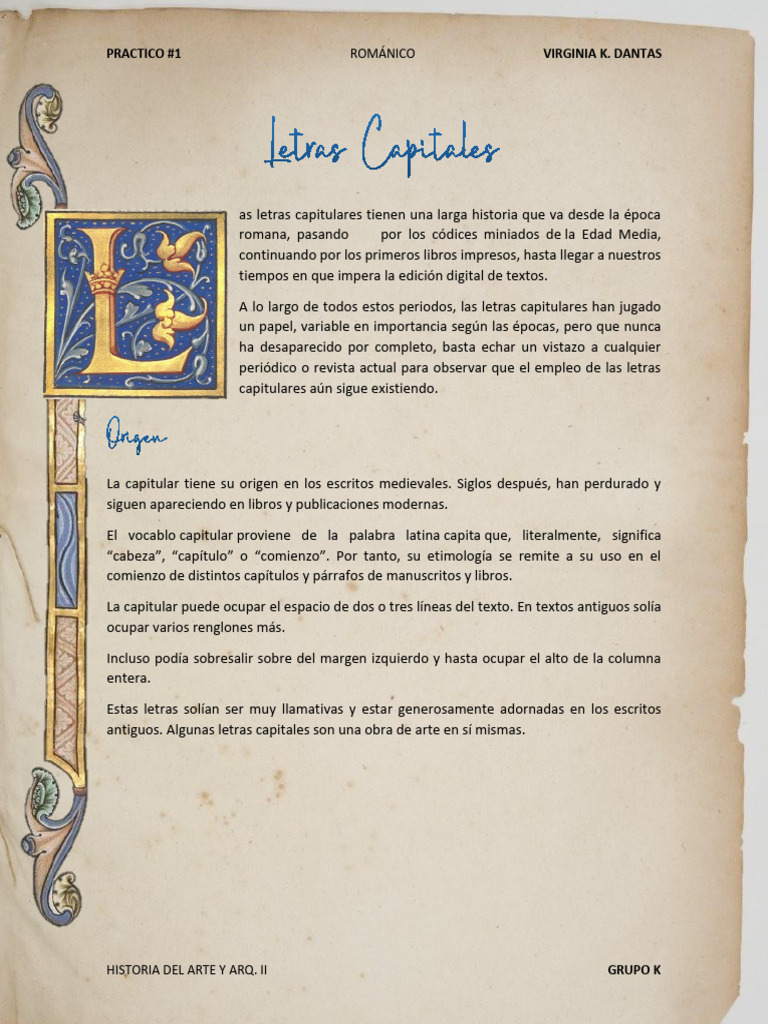 PRACTICO #1 ROMÁNICO VIRGINIA K. DANTAS
Letras Capitales
L
as letras capitulares tienen una larga historia que va desde la época
romana, pasando por los códices miniados de la Edad Media,
continuando por los primeros libros impresos, hasta llegar a nuestros
tiempos en que impera la edición digital de textos.
A lo largo de todos estos periodos, las letras capitulares han jugado
un papel, variable en importancia según las épocas, pero que nunca
ha desaparecido por completo, basta echar un vistazo a cualquier
periódico o revista actual para observar que el empleo de las letras
capitulares aún sigue existiendo.
Origen
La capitular tiene su origen en los escritos medievales. Siglos después, han perdurado y
siguen apareciendo en libros y publicaciones modernas.
El vocablo capitular proviene de la palabra latina capita que, literalmente, significa
“cabeza”, “capítulo” o “comienzo”. Por tanto, su etimología se remite a su uso en el
comienzo de distintos capítulos y párrafos de manuscritos y libros.
La capitular puede ocupar el espacio de dos o tres líneas del texto. En textos antiguos solía
ocupar varios renglones más.
Incluso podía sobresalir sobre del margen izquierdo y hasta ocupar el alto de la columna
entera.
Estas letras solían ser muy llamativas y estar generosamente adornadas en los escritos
antiguos. Algunas letras capitales son una obra de arte en sí mismas.
HISTORIA DEL ARTE Y ARQ. II GRUPO K